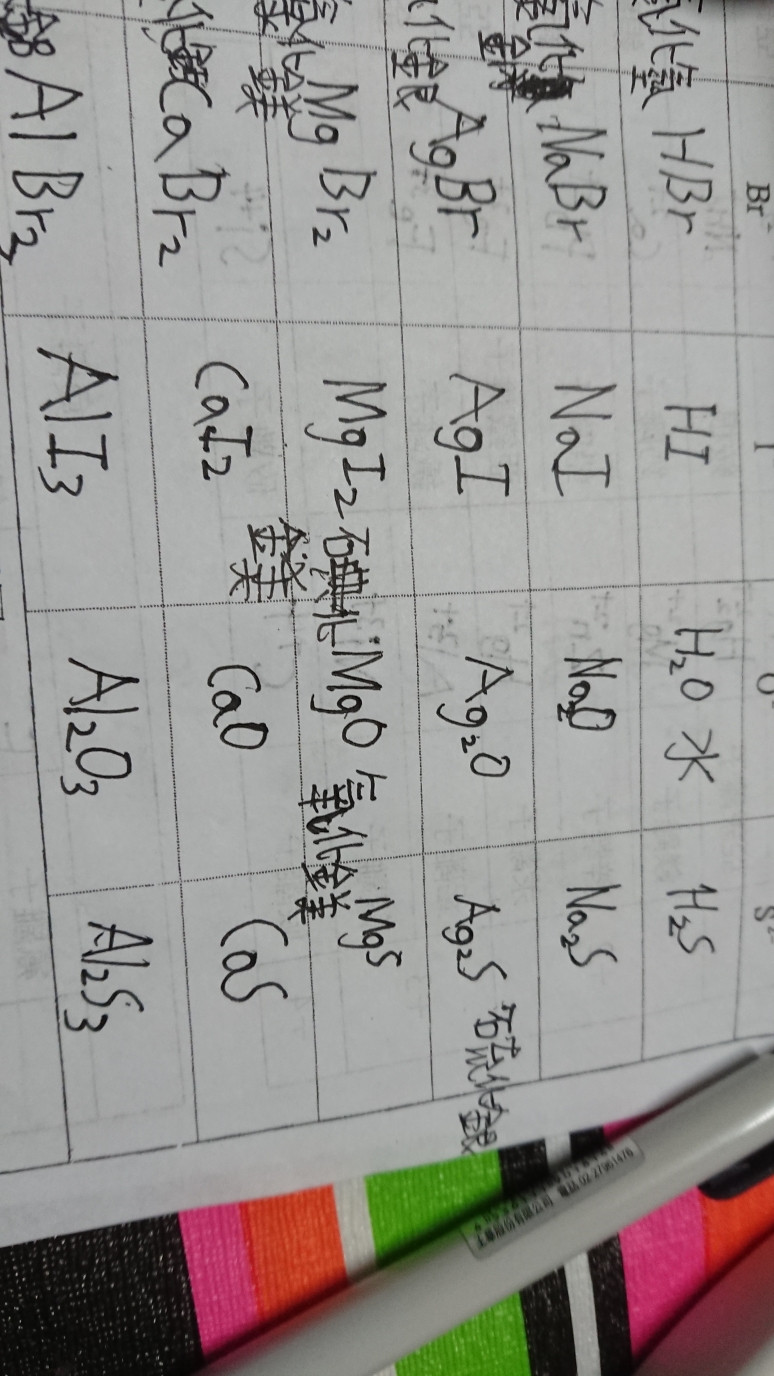 Br⁻ I O S²
化氫 HBr HI H₂O 水 H₂S
NaBr NaI Na₂O Na₂S
化銀 AgBr AgI Ag₂O Ag₂S 硫化銀
MgBr₂ MgI₂ 碘化鎂 MgO 氧化鎂 MgS
CaBr₂ CaI₂ CaO CaS
AlBr₃ AlI₃ Al₂O₃ Al₂S₃
股份有限公司 電話 02-27961476